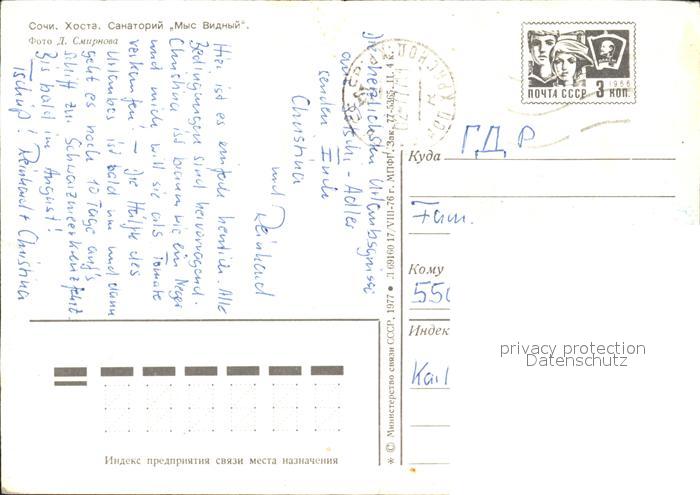 Сочи. Хоста. Санаторий „Мыс Видный“.
Фото Д. Смирнова
Die herzlichsten Urlaubsgrüsse
aus Sotschi - Adler
senden Euch
Christina
und
Reinhard
Hier ist es einfach herrlich. Alle
Bedingungen sind hervorragend.
Christina ist braun wie ein Neger
und mich will sie als Tomate
verkaufen! - Die Hälfte des
Urlaubes ist bald um und dann
geht es noch 10 Tage auf's
Schiff zur Schwarzmeerkreuzfahrt.
Bis bald im August!
Tschüß! Reinhard + Christina
Индекс предприятия связи места назначения
* © Министерство связи СССР, 1977 • 169160 17/VIII-76 г. МПФГ. Зак. 77-5365. Ц. 4 к.
ПОЧТА СССР 3 КОП.
1966
Куда
ГДР
Fam.
Кому
550
Индек
Karl
privacy protection
Datenschutz